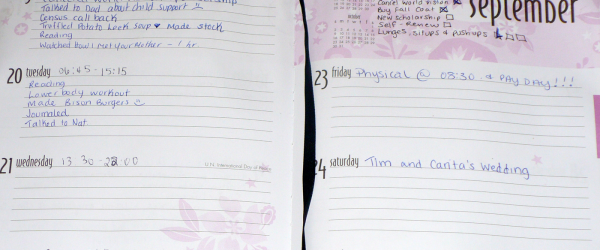 Talked to Dad about child support
Census call back
Truffled Potato Leek Soup ♥ Made stock
Reading
Watched How I Met Your Mother - 1 hr
20 tuesday 06:45 - 15:15
Reading
Lower body workout
Made Bison Burgers
Journaled
Talked to Nat
21 wednesday 13 30 - 22:00
U.N. International Day of Peace
September
Buy Fall Coat
New Scholarship
Self-Review
Lunges, situps & pushups
23 friday Physical @ 08:30 & PAY DAY!!!
24 saturday Tim and Carita's Wedding